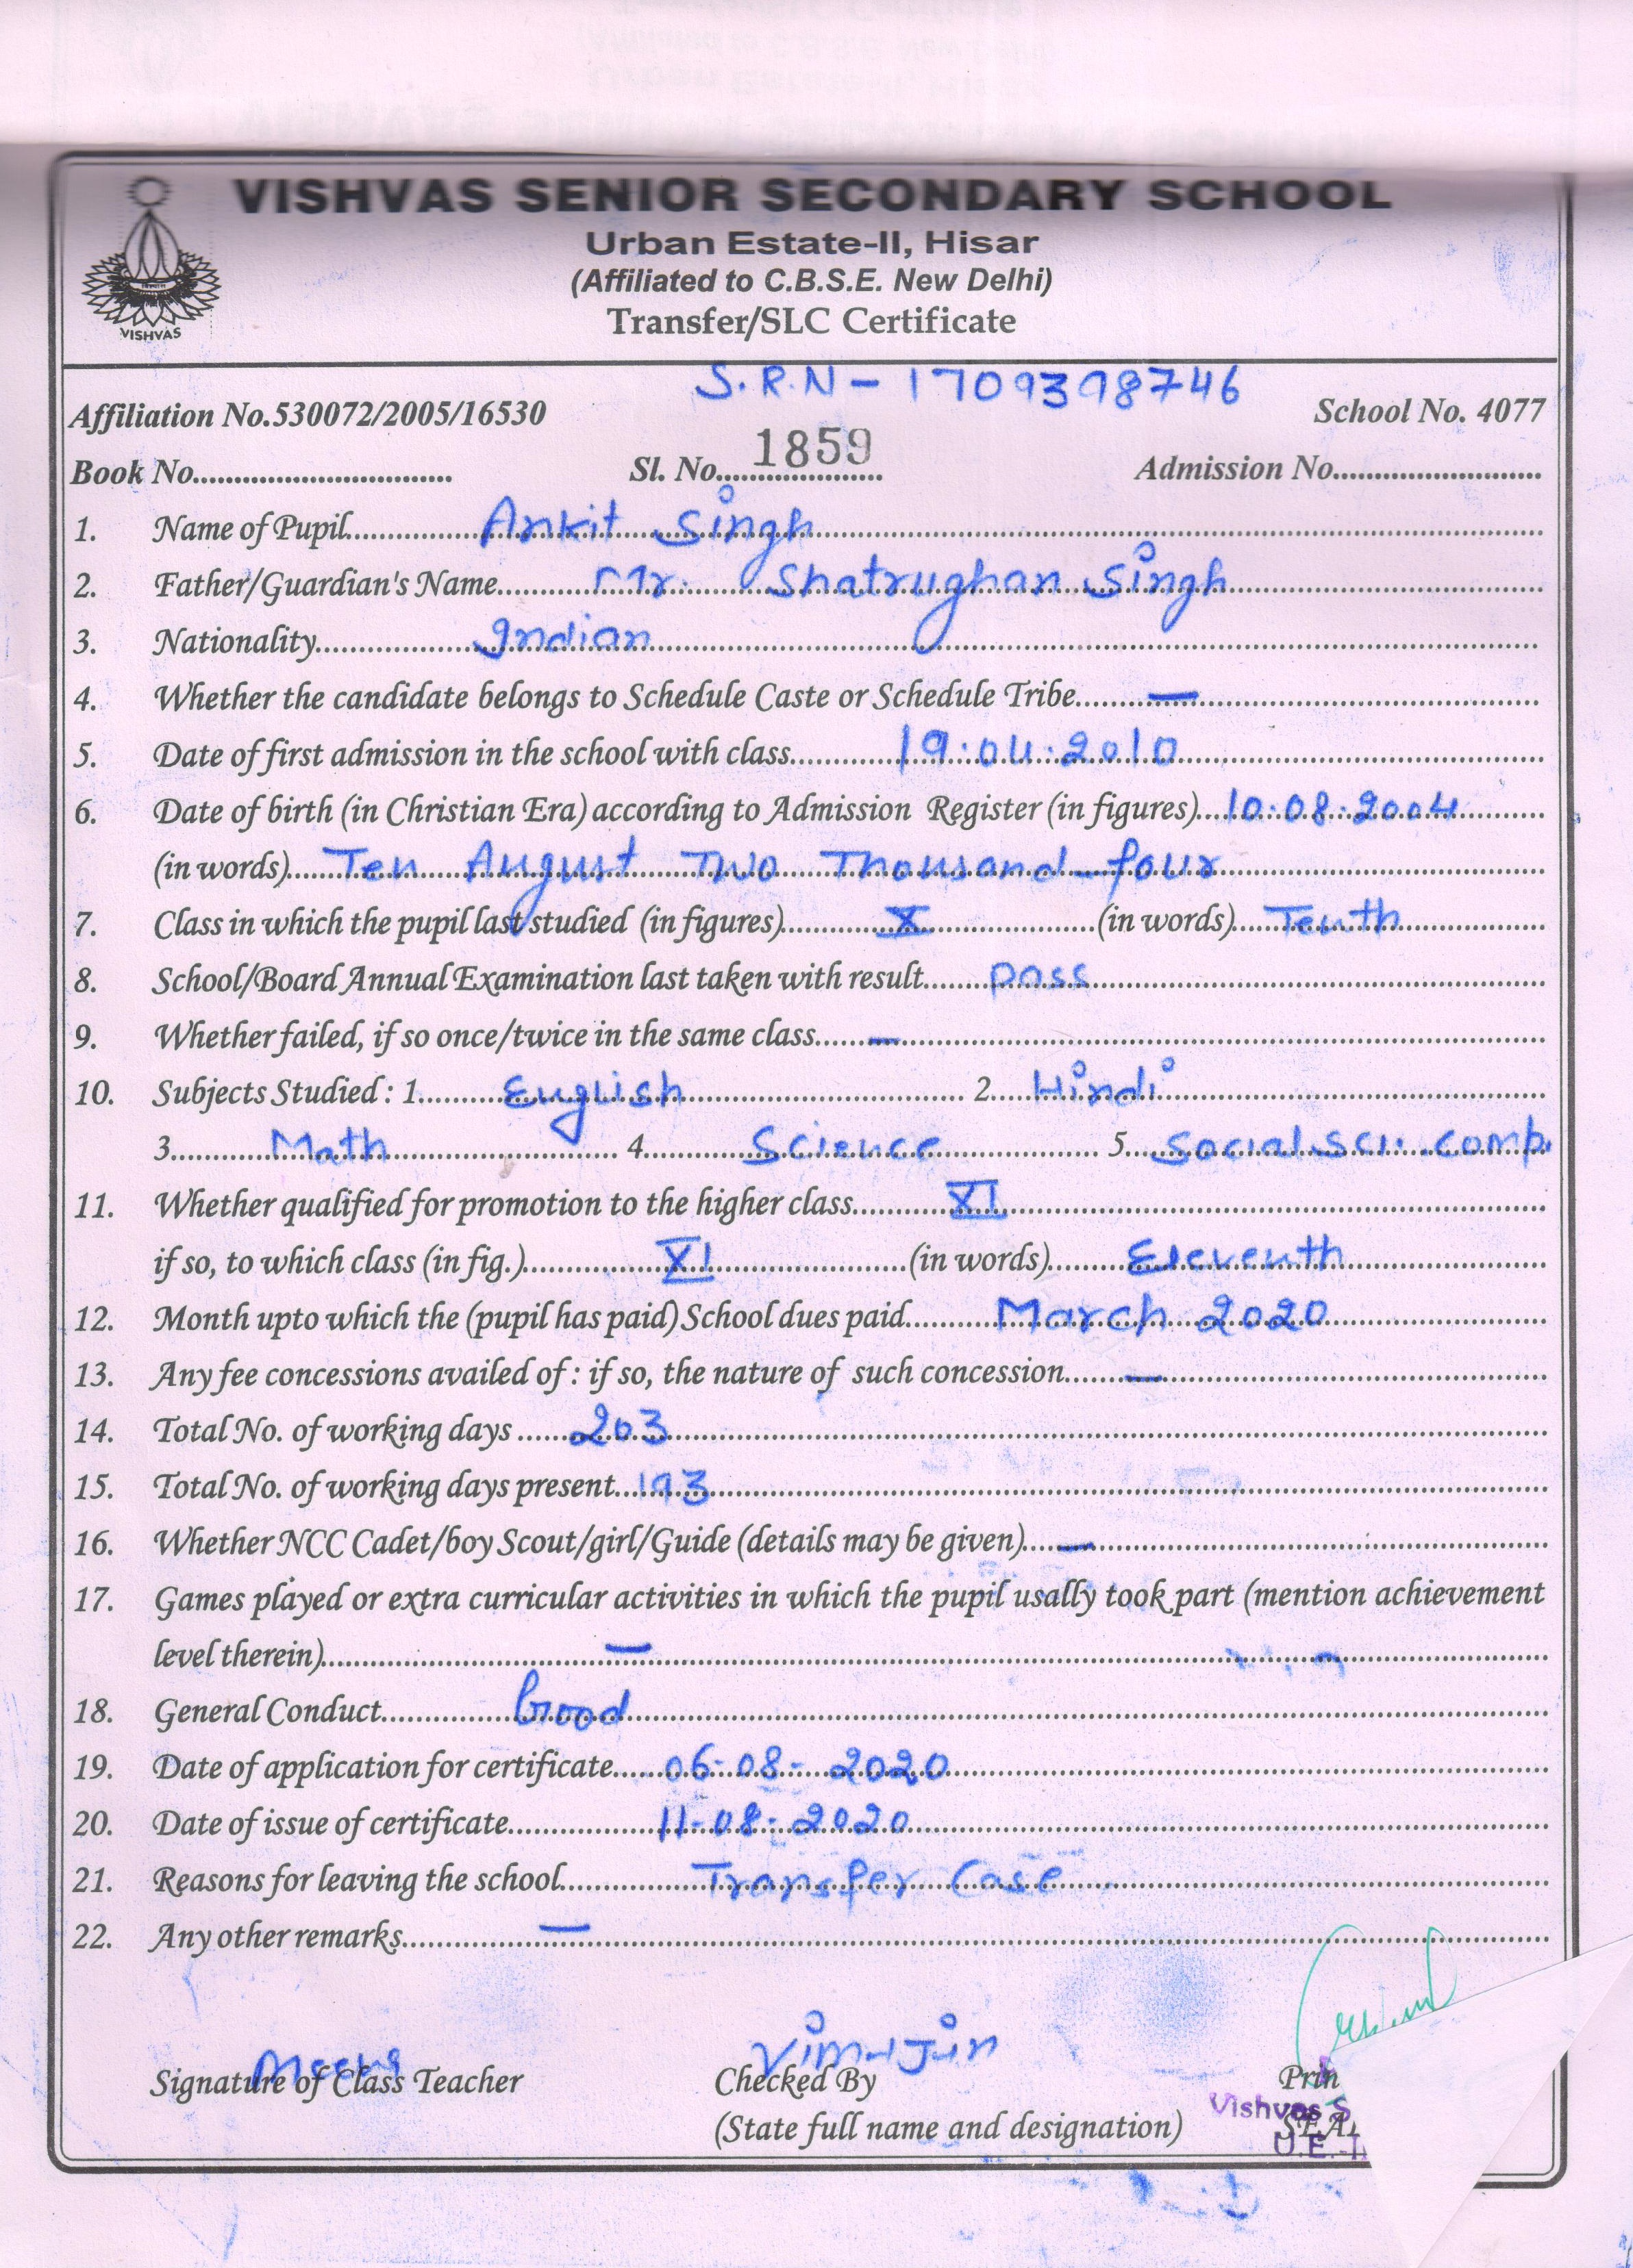 VISHVAS SENIOR SECONDARY SCHOOL
Urban Estate-II, Hisar
(Affiliated to C.B.S.E. New Delhi)
Transfer/SLC Certificate
VISHVAS
S.R.N - 1709398746
Affiliation No.530072/2005/16530 School No. 4077
Book No. Sl. No. 1859 Admission No.
1. Name of Pupil Ankit Singh
2. Father/Guardian's Name Mr. Shatrughan Singh
3. Nationality Indian
4. Whether the candidate belongs to Schedule Caste or Schedule Tribe —
5. Date of first admission in the school with class 19.04.2010
6. Date of birth (in Christian Era) according to Admission Register (in figures) 10.08.2004
(in words) Ten August Two Thousand four
7. Class in which the pupil last studied (in figures) X (in words) Tenth
8. School/Board Annual Examination last taken with result pass
9. Whether failed, if so once/twice in the same class —
10. Subjects Studied : 1. English 2. Hindi
3. Math 4. Science 5. Social Sci. Comp.
11. Whether qualified for promotion to the higher class XI
if so, to which class (in fig.) XI (in words) Eleventh
12. Month upto which the (pupil has paid) School dues paid March 2020
13. Any fee concessions availed of : if so, the nature of such concession —
14. Total No. of working days 203
15. Total No. of working days present 193
16. Whether NCC Cadet/boy Scout/girl/Guide (details may be given) —
17. Games played or extra curricular activities in which the pupil usally took part (mention achievement
level therein) —
18. General Conduct Good
19. Date of application for certificate 06-08-2020
20. Date of issue of certificate 11-08-2020
21. Reasons for leaving the school Transfer Case
22. Any other remarks —
Signature of Class Teacher Checked By Prin
(State full name and designation) SEAL
Vishvas S
U.E.-I